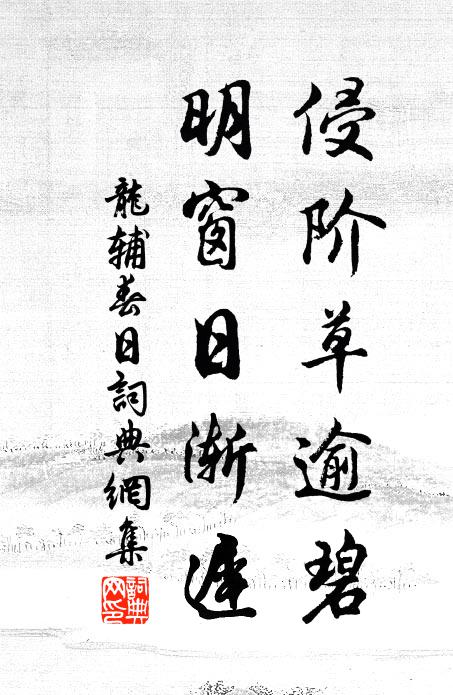 侵阶草逾碧
明窗日渐迟
龍辅春日詞典網集
詞典网印